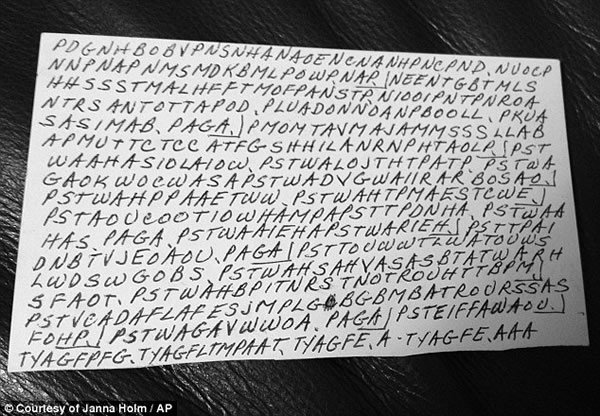 PDGNHBOBVPNSNHANAOENCNANHPNCPND. NUOCP
NNPNAPNMSMDKBMLPOWP, NAP. | NEENTGBTMLS
HHSSSTMALHFFTMOFPANSTP. NIOOIPNTPNROA
NTRSANTOTTAPOD. PLUADONNOANPBOOLL. PKUA
SASIMAB. PAGA. | PMOMTAVMAJAMMSSSLLAB
APMUTTCTCC ATFGSHHILANRNPHTAOLP. | PST
WAAHASIOLAIOW. PSTWALOJTHTPATP. PSTWA
GAOKWOCWASAPSTWADVGWAIIRAR. BOSAO. |
PSTWAHPPAAETWW. PSTWAHTPMAESTCWE. |
PSTAOUCOOTIOWHAMPAPSTTPDNHA. PSTWAA
HAS. PAGA. PSTWAAIEHAPSTWARIEH. | PSTTPAI
DNBTVJEOAOU. PAGA | PSTTOUWWTLWATOUWS
LWDSWGOBS. PSTWAHSAHVASASBTATWARH
SFAOT. PSTWAHBPITNRSTNOTROUHTTBPM. |
PSTVCADAFLAFESJMPLG BGBMBATROURSSAS
FOHP. | PSTWAGAVWWOA. PAGA | PSTEIFFAWAOU. |
TYAGFPFG. TYAGFLTMPAAT. TYAGFE. A-TYAGFE. AAA
© Courtesy of Janna Holm / AP